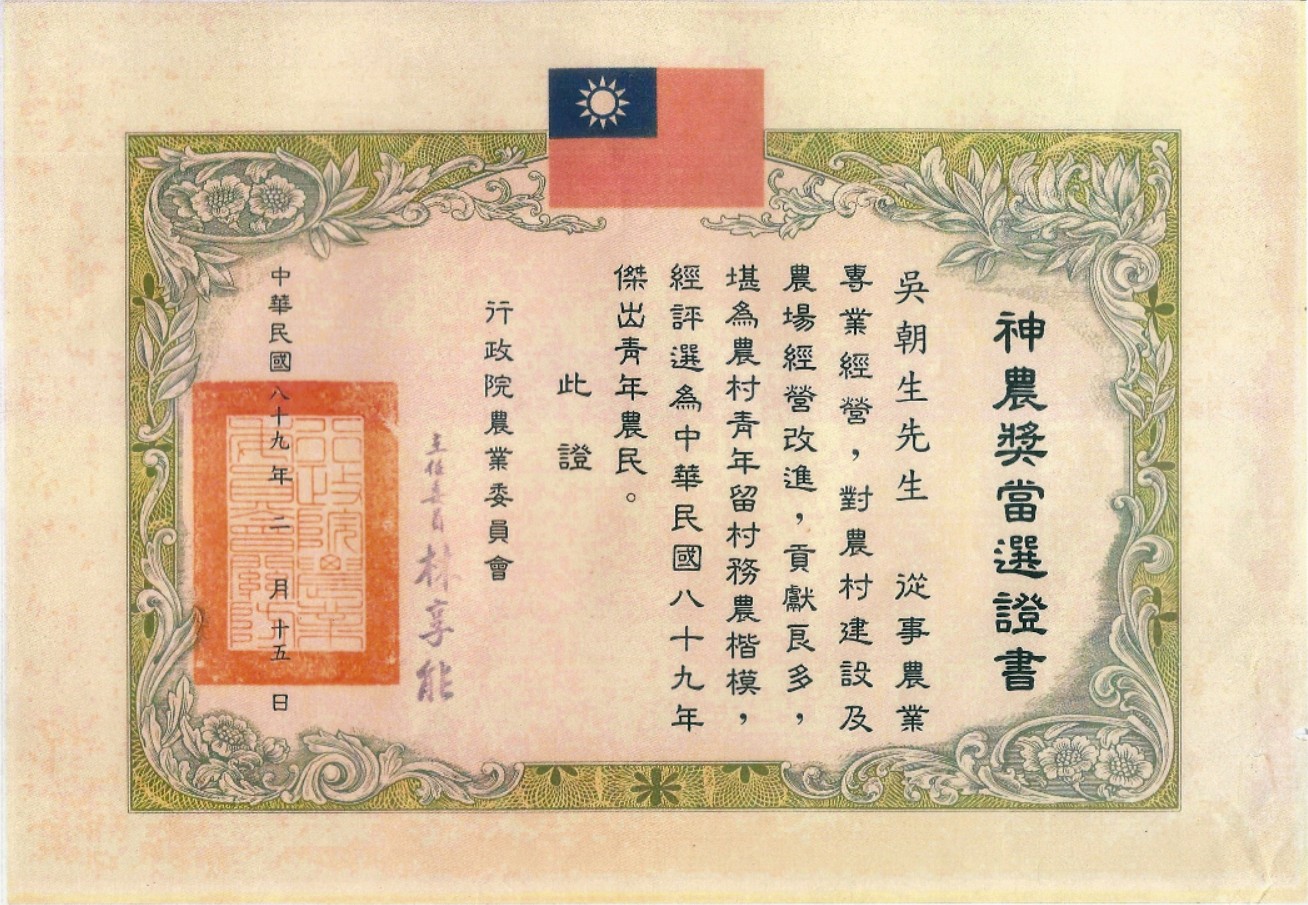 神農獎當選證書
吳朝生先生 從事農業
專業經營，對農村建設及
農場經營改進，貢獻良多，
堪為農村青年留村務農楷模，
經評選為中華民國八十九年
傑出青年農民。
此證
行政院農業委員會
主任委員 林享能
中華民國八十九年二月十五日